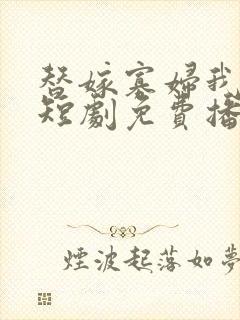 替嫁寡婦我
短劇免費播
煙波起落如夢